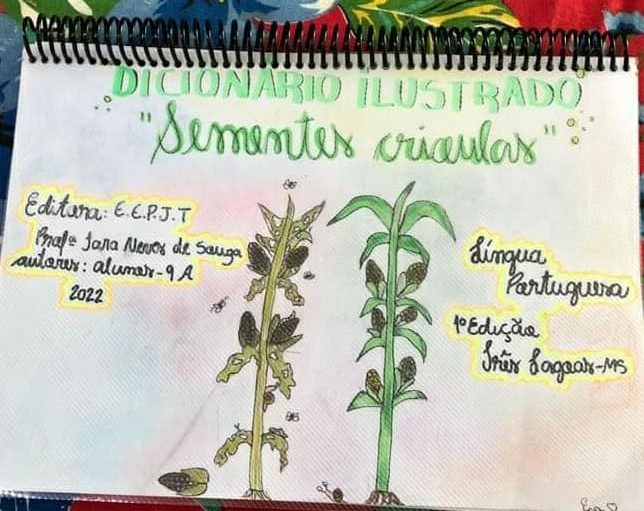 DICIONÁRIO ILUSTRADO
"Sementes crioulas"
Editora: E.E.P.J.T
Profª Iara Neves de Souza
autores: alunos-9 A
2022
Língua
Portuguesa
1º Edição
Três Lagoas-MS